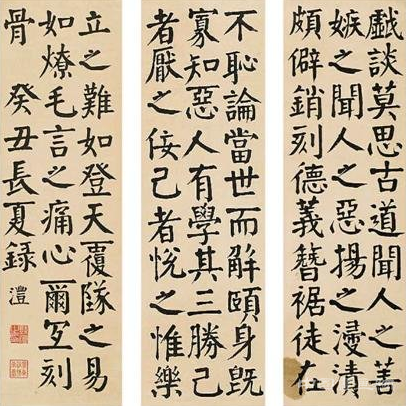 戲談莫思古道聞人之善
嫉之聞人之惡揚之浸漬
頗僻銷刻德義簪裾徒在
不恥論當世而解頤身既
寡知惡人有學其三勝己
者厭之佞己者悅之惟樂
立之難如登天覆隊之易
如燎毛言之痛心爾宜刻
骨 癸丑長夏錄 澧